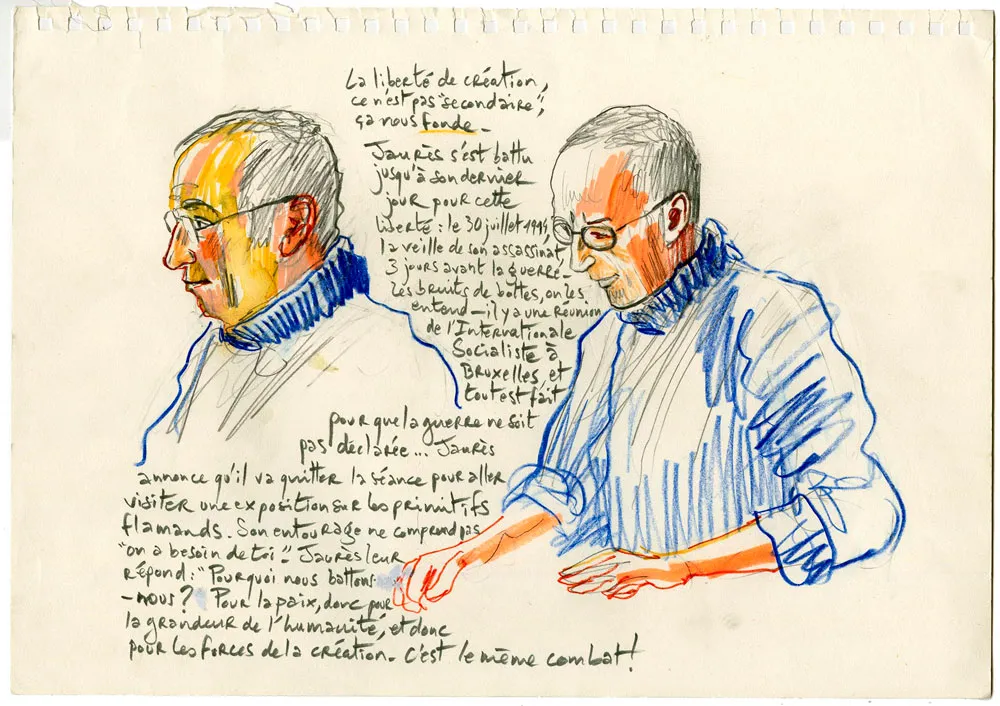 La liberté de création,
ce n'est pas "secondaire",
ça nous fonde -
Jaurès s'est battu
jusqu'à son dernier
jour pour cette
liberté : le 30 juillet 1914,
la veille de son assassinat,
3 jours avant la guerre -
les bruits de bottes, on les
entend - il y a une réunion
de l'Internationale
Socialiste à
Bruxelles et
tout est fait
pour que la guerre ne soit
pas déclarée... Jaurès
annonce qu'il va quitter la séance pour aller
visiter une exposition sur les primitifs
flamands. Son entourage ne comprend pas
"on a besoin de toi". Jaurès leur
répond : "Pourquoi nous battons-
-nous ? Pour la paix, donc pour
la grandeur de l'humanité, et donc
pour les forces de la création - C'est le même combat !